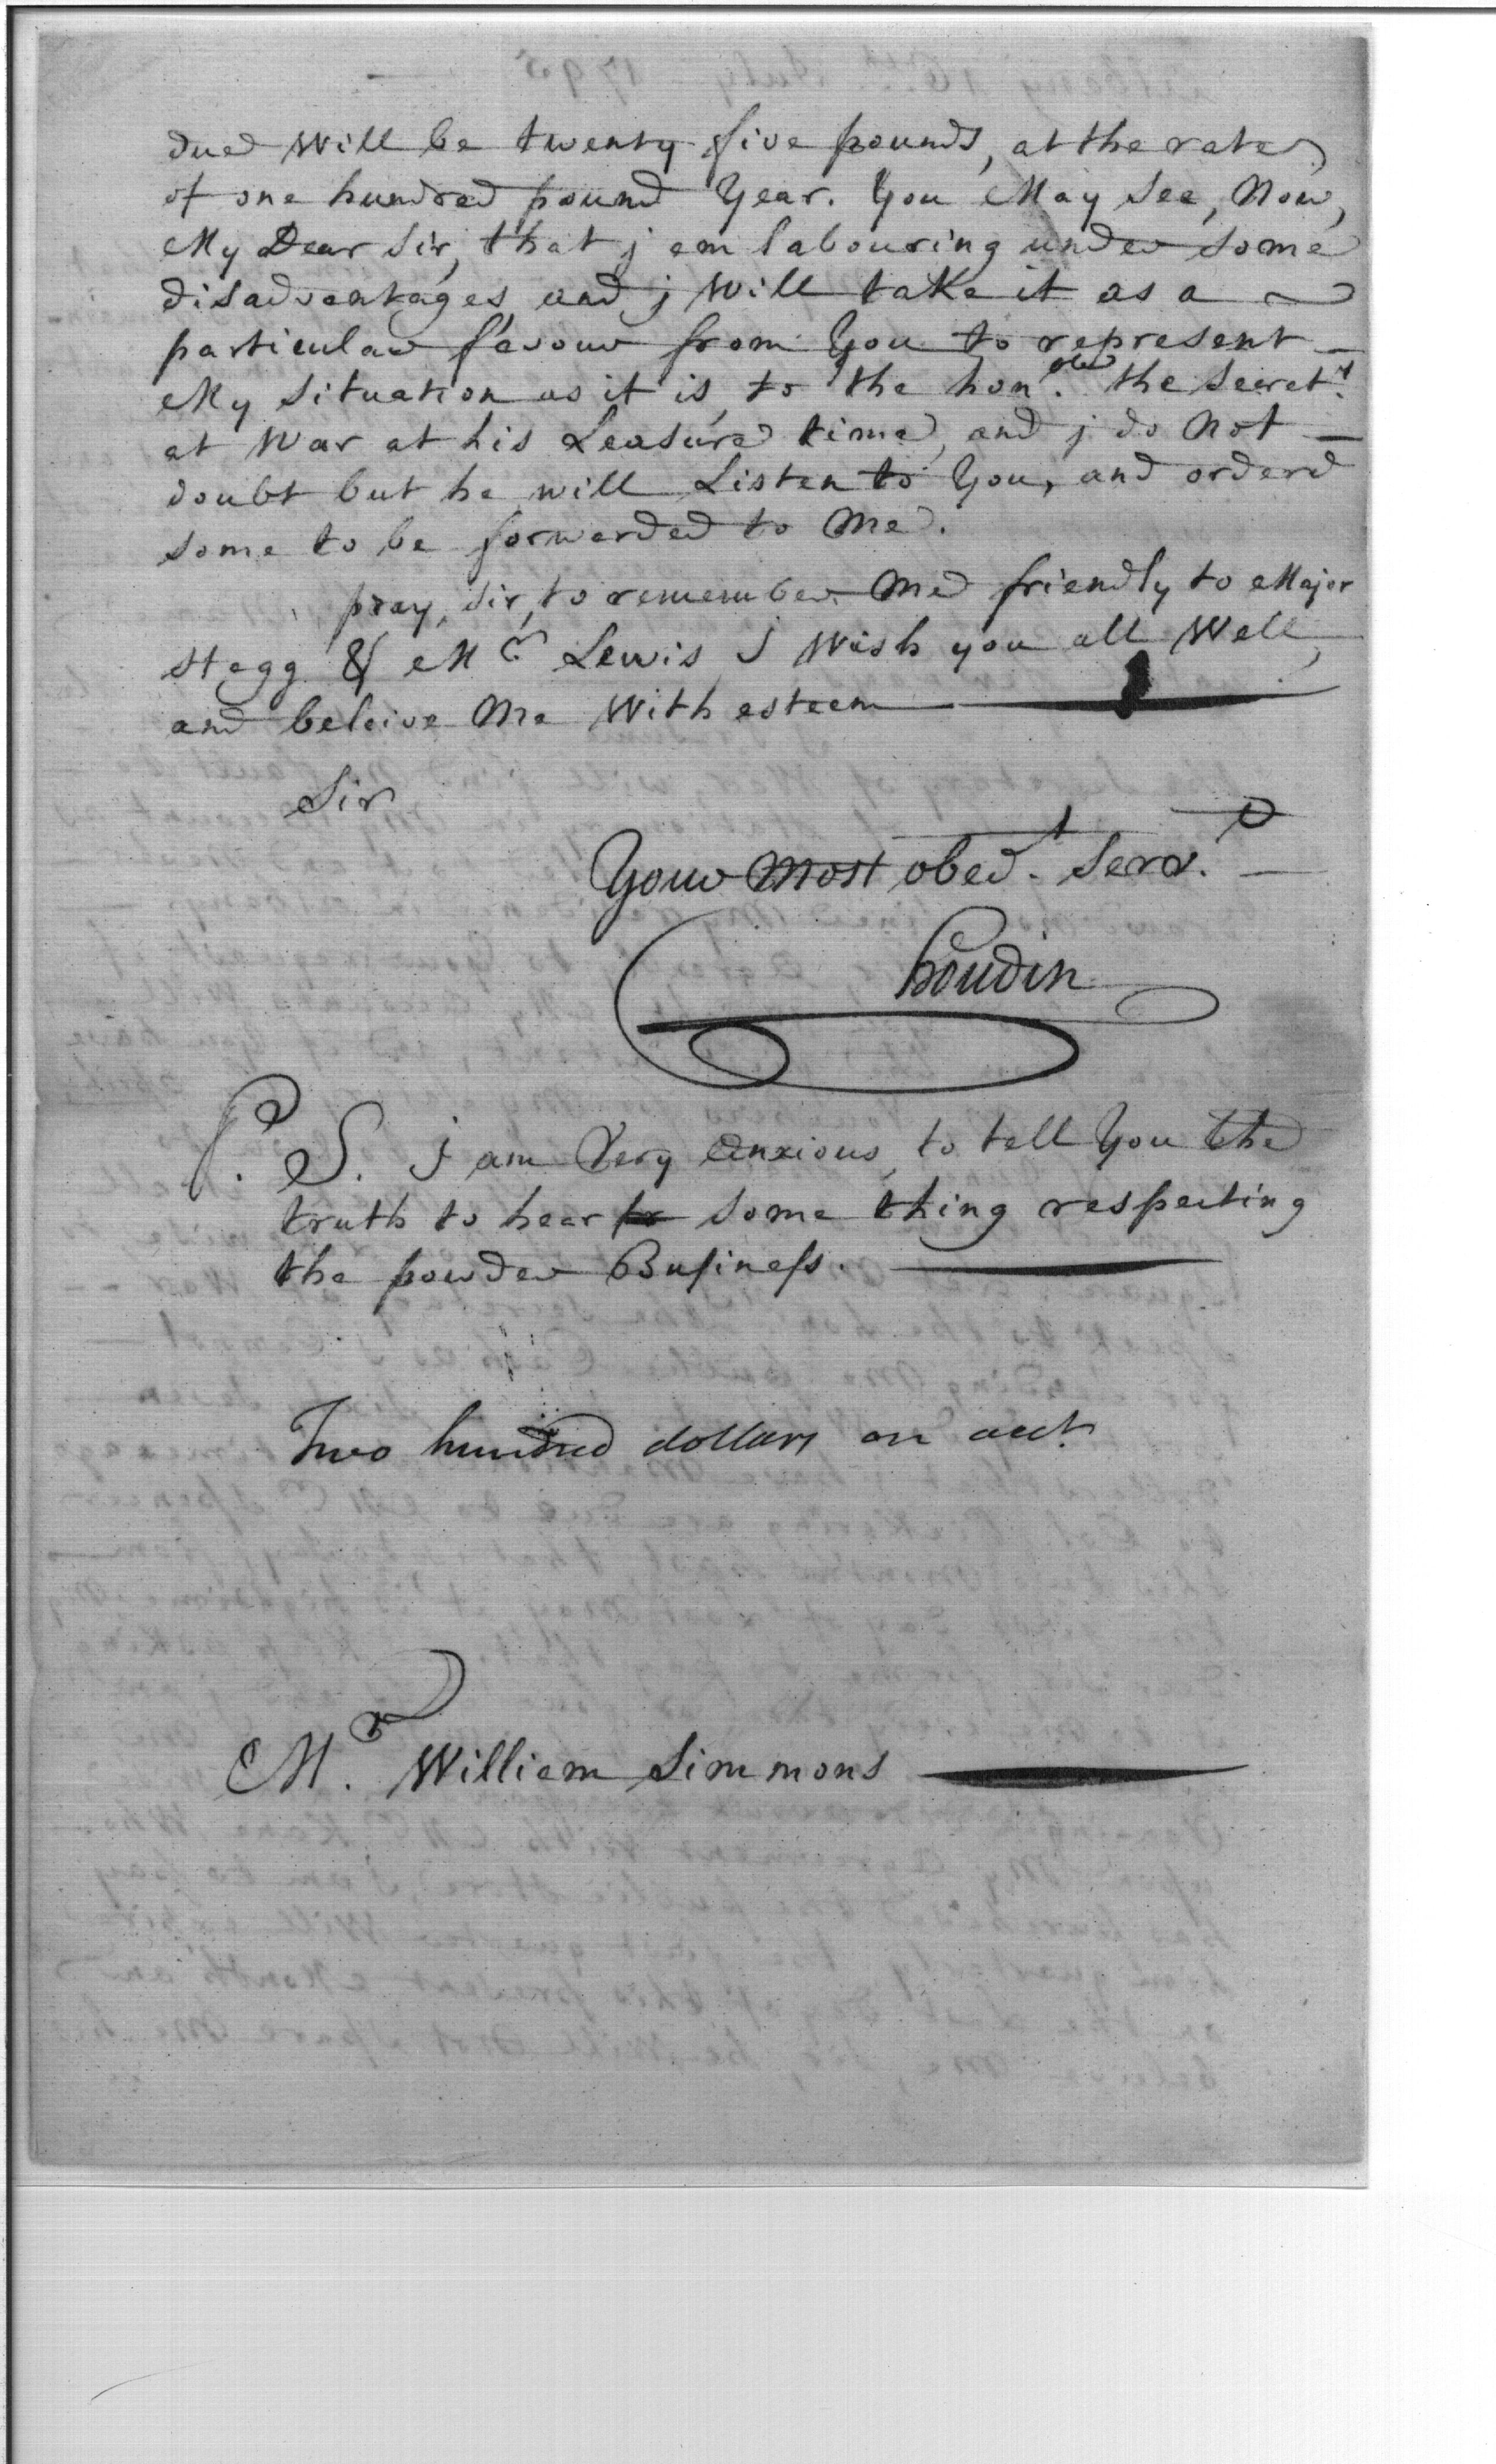 due will be twenty five pounds, at the rate
of one hundred pound Year. You May See, Now,
My Dear Sir, that j am labouring under some
disadvantages, and j Will take it as a
particular favour from You to represent
My Situation as it is, to the hon.ble the Secret.y
at War at his Leasure time, and j do Not
doubt but he will Listen to You, and orderd
some to be forwarded to Me.
pray, Sir, to remember Me friendly to Major
Stagg & Mr. Lewis J Wish you all Well,
and beleive Me With esteem
Sir
Your Most obed.t Serv.t
Houdin
P. S. J am Very Anxious, to tell You the
truth to hear some thing respecting
the powder Business.
Two hundred dollars on acct.
Mr. William Simmons